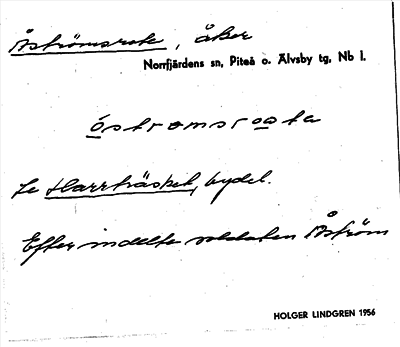 Åströmsrota, åker
Norrfjärdens sn, Piteå o. Älvsby tg, Nb l.
óstromsrota
Se Harrträsket, bydel.
Efter indelte soldaten Åström
HOLGER LINDGREN 1956